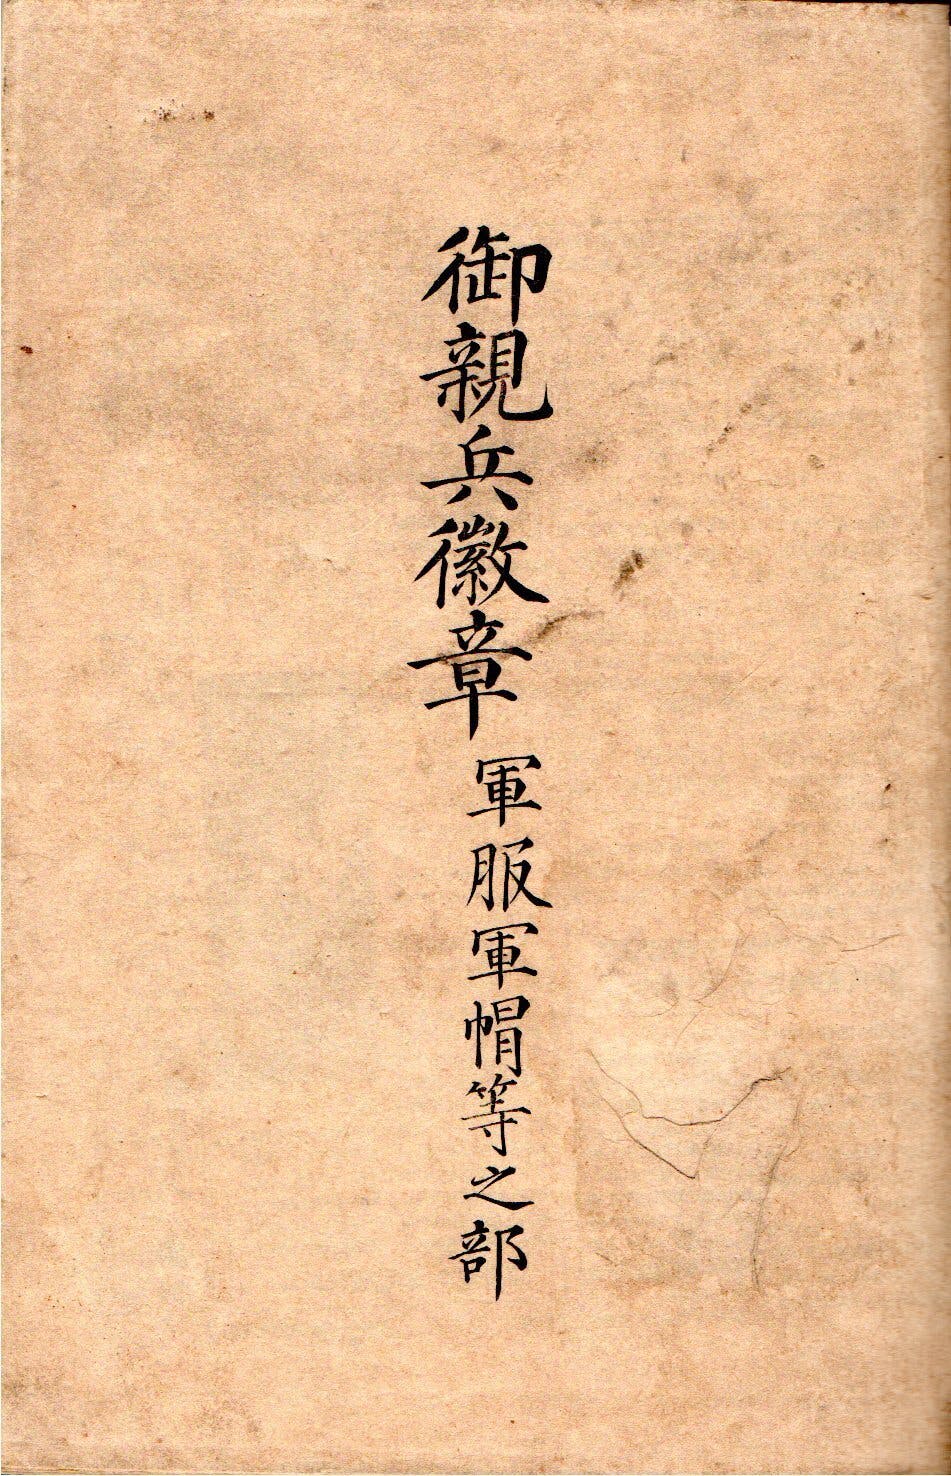 御親兵徽章軍服軍帽等之部